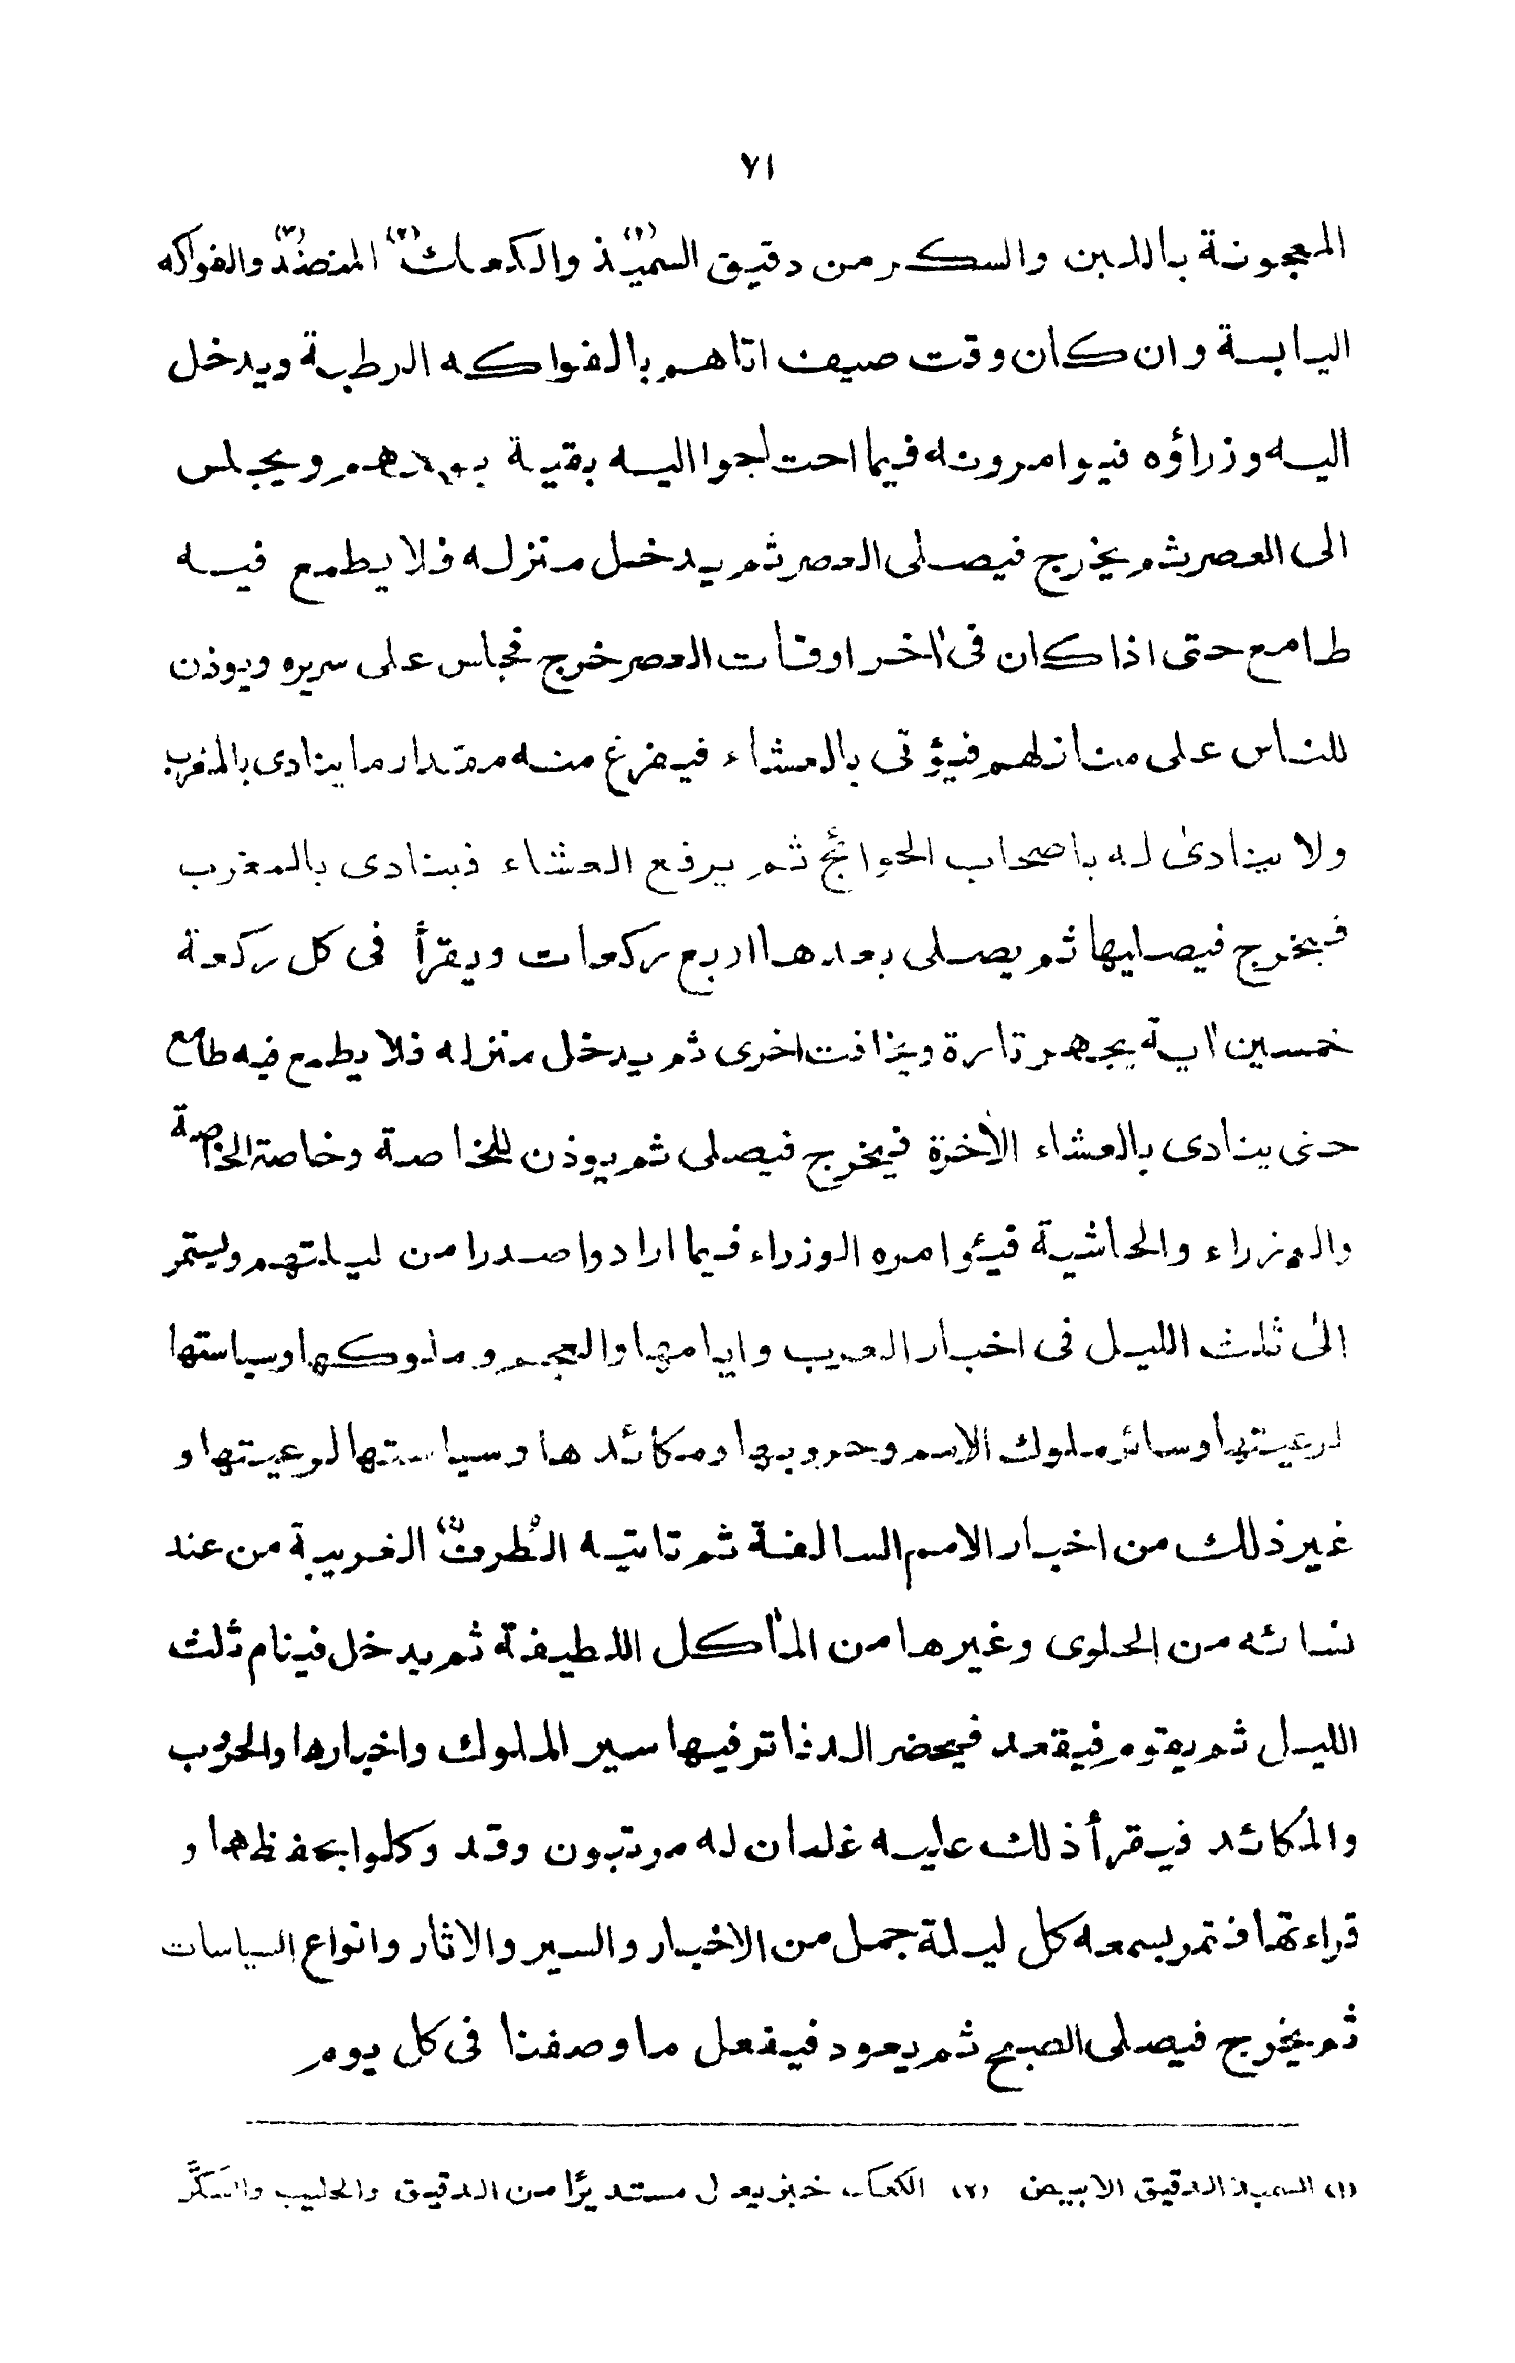 ٧١
المعجونة باللبن والسكر من دقيق السميذ(١) والكعك(٢) المنضد(٣) والفواكه
اليابسة وان كان وقت صيف اتاهم بالفواكه الرطبة ويدخل
اليه وزراؤه فيوامرونه فيما احتاجوا اليه بقية يومهم ويجلس
الى العصر ثم يخرج فيصلى العصر ثم يدخل منزله فلا يطمع فيه
طامع حتى اذا كان فى اٰخر اوقات العصر خرج فجلس على سريره ويوذن
للناس على منازلهم فيؤتى بالعشاء فيفرغ منه مقدار ما ينادى بالمغرب
ولا ينادىٰ له باصحاب الحوائج ثم يرفع العشاء فينادى بالمغرب
فيخرج فيصليها ثم يصلى بعدها اربع ركعات ويقرأ فى كل ركعة
خمسين اٰية يجهر تارة ويخافت اخرى ثم يدخل منزله فلا يطمع فيه طامع
حتى ينادى بالعشاء الاٰخرة فيخرج فيصلى ثم يوذن للخاصة وخاصة الخاصة
والوزراء والحاشية فيئوامره الوزراء فيما ارادوا صدرا من ليلتهم ويستمر
الىٰ ثلث الليل فى اخبار العرب وايامها والعجم وملوكها وسياستها
لرعيتها وسائر ملوك الامم وحروبها ومكائدها وسياستها لرعيتها و
غير ذلك من اخبار الامم السالفة ثم تاتيه الطُرف(٤) الغريبة من عند
نسائه من الحلوى وغيرها من المآكل اللطيفة ثم يدخل فينام ثلث
الليل ثم يقوم فيقعد فيحضر الدفاتر فيها سير الملوك واخبارها والحروب
والمكائد فيقرأ ذلك عليه غلمان له مرتبون وقد وكلوا بحفظها و
قراءتها فتمر بسمعه كل ليلة جمل من الاخبار والسير والاثار وانواع السياسات
ثم يخرج فيصلى الصبح ثم يعود فيفعل ما وصفنا فى كل يوم
(١) السميذ الدقيق الابيض (٢) الكعك خبز يعمل مستديرًا من الدقيق والحليب والسَكَّر